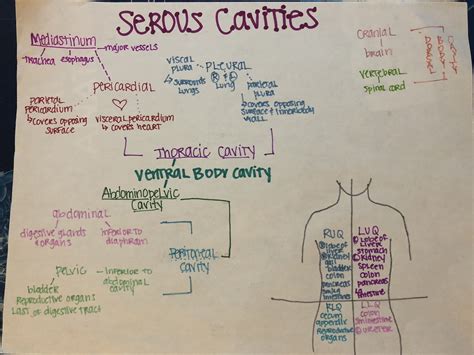 SEROUS CAVITIES
Mediastinum
major vessels
trachea
esophagus
PERICARDIAL
PARIETAL
pericardium
covers opposing
surface
visceral pericardium
covers heart
viscal
plura
surrounds
lungs
PLEURAL
R & L
lung
parietal
plura
covers opposing
surface &
wall
Cranial
brain
vertebral
spinal cord
Thoracic Cavity
VENTRAL BODY CAVITY
Abdominopelvic
Cavity
abdominal
digestive glands
& organs
inferior to
diaphram
Peritoneal
cavity
pelvic
inferior to
abdominal
cavity
bladder
Reproductive organs
Last of digestive tract
RUQ
lobe of
liver
kidney
gall
bladder
colon
pancreas
small
intestines
LUQ
lobe of
liver
stomach
kidney
spleen
colon
pancreas
intestine
RLQ
cecum
appendix
reproductive
organs
LLQ
colon
sm intestine
ureter